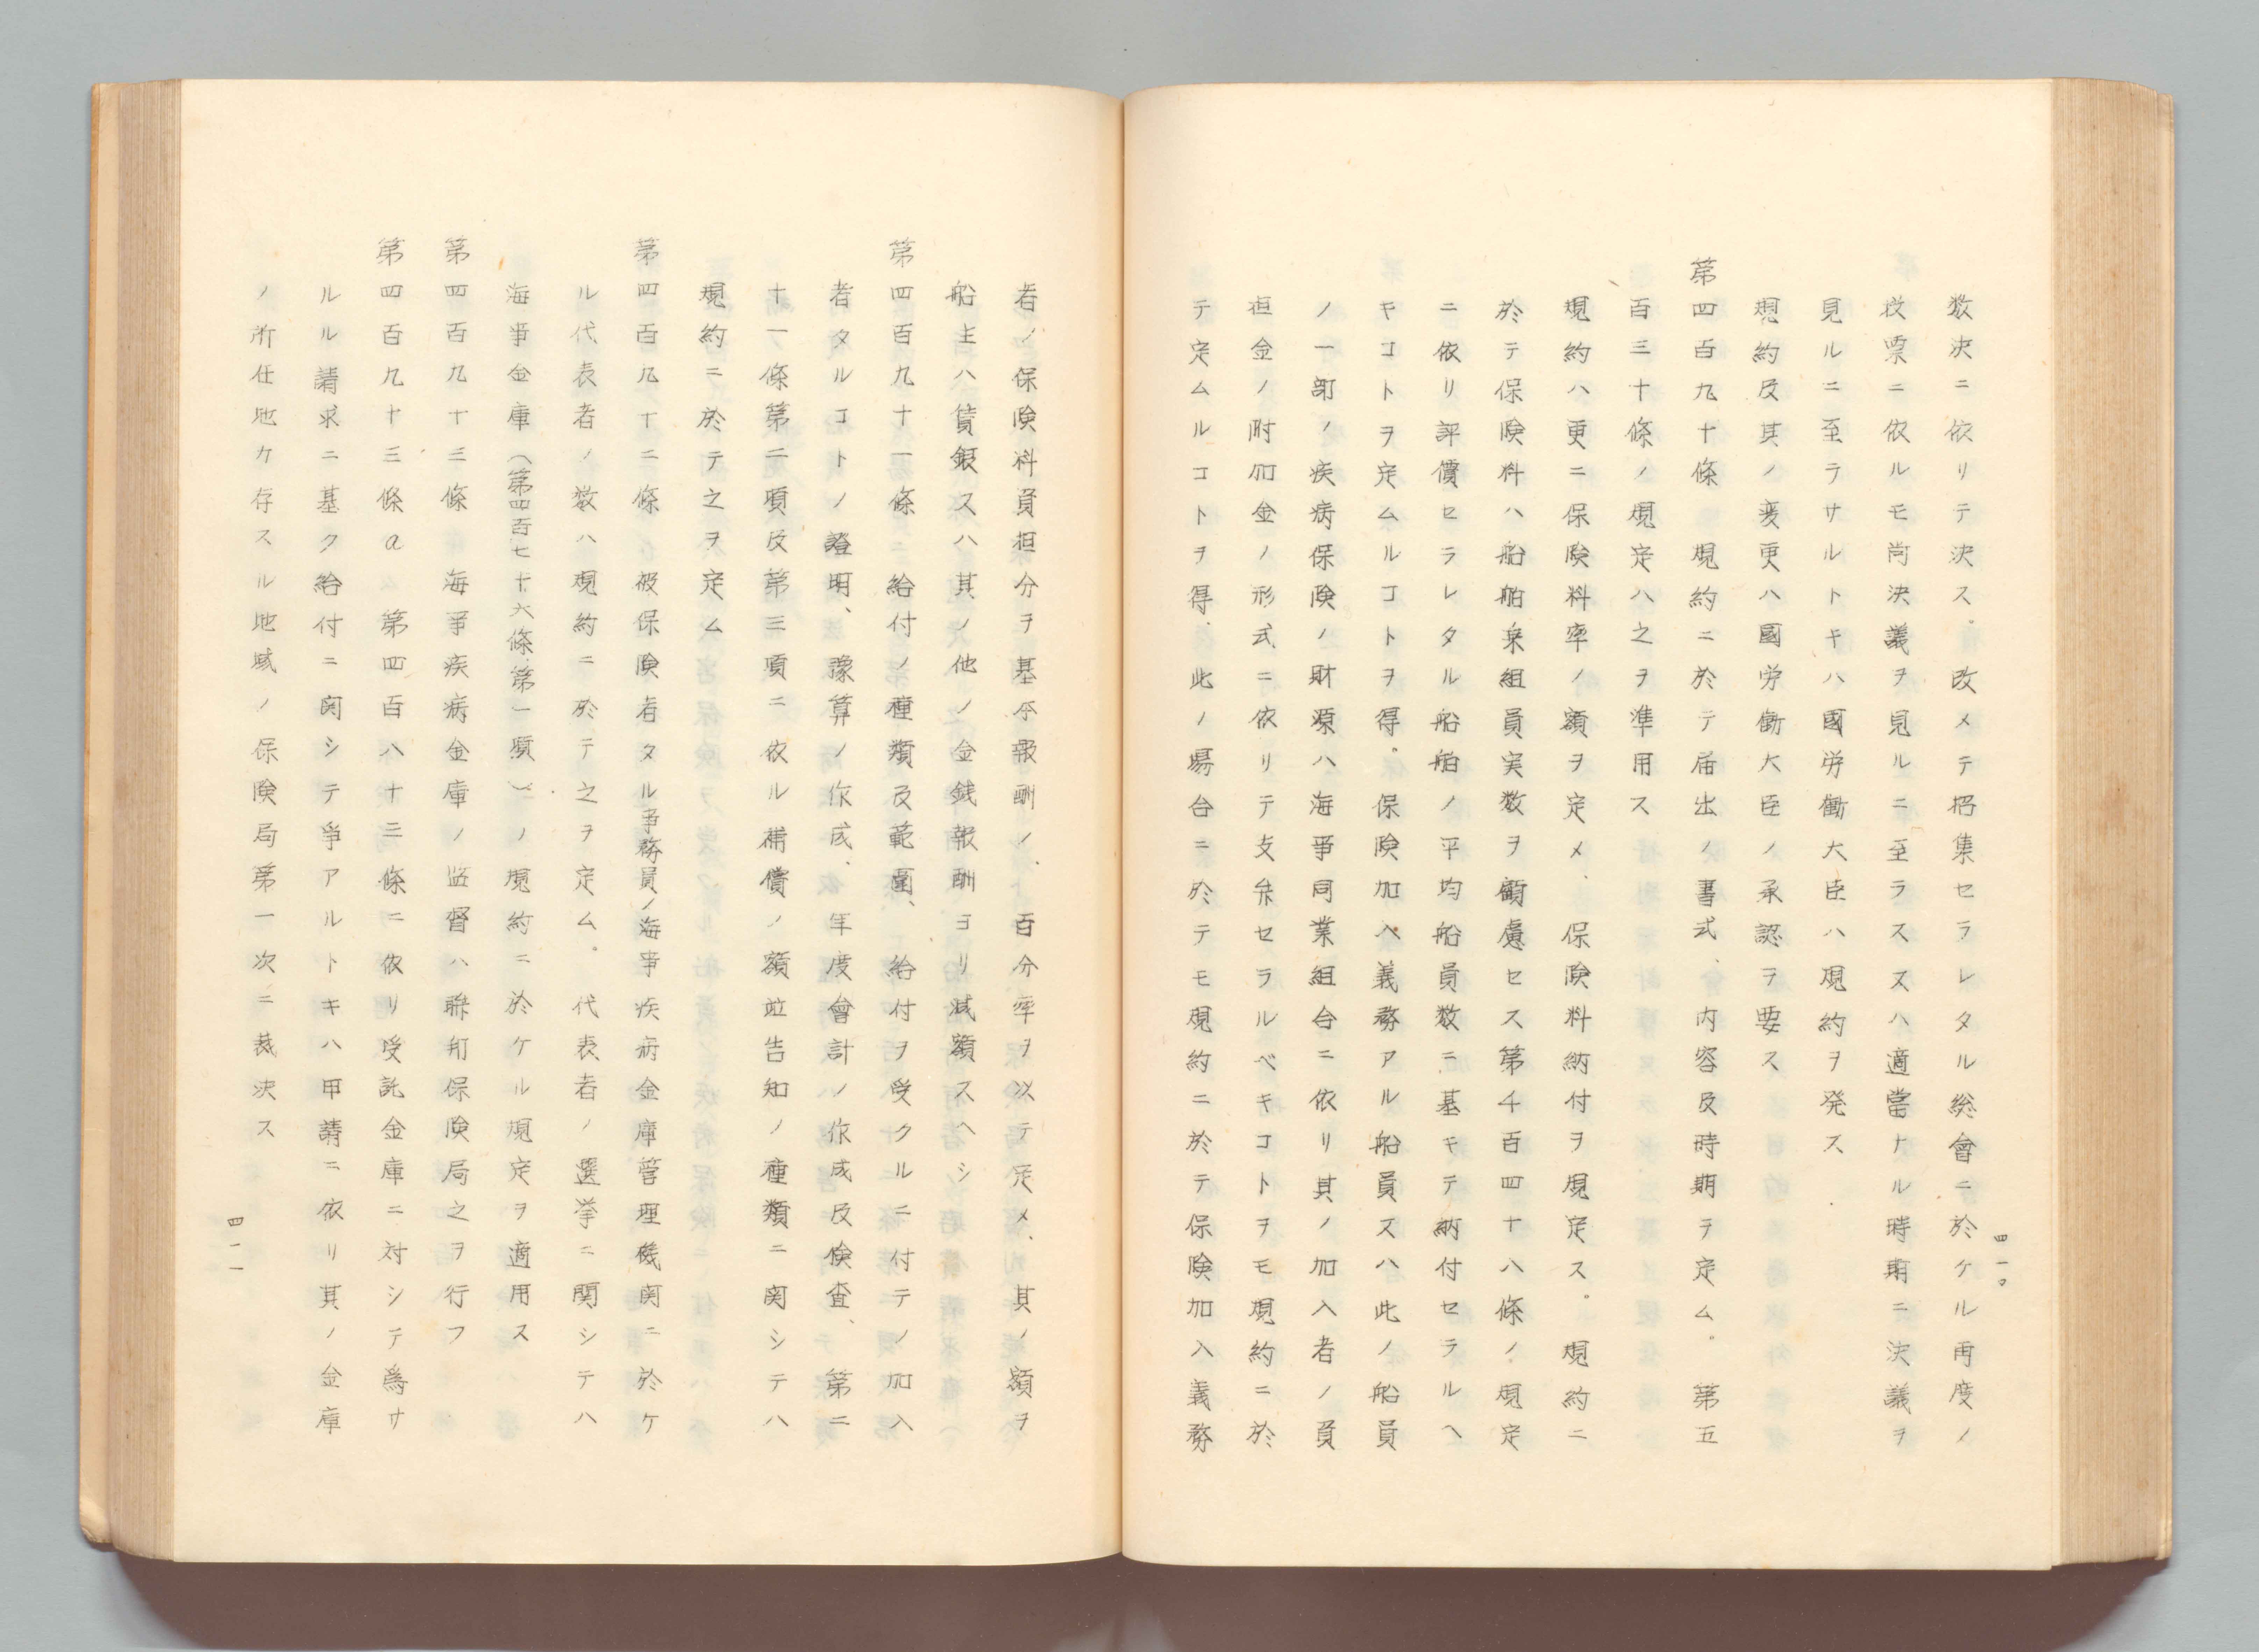 数決ニ依リテ決ス。改メテ招集セラレタル総會ニ於ケル再度ノ
投票ニ依ルモ尚決議ヲ見ルニ至ラスズハ適當ナル時期ニ決議ヲ
見ルニ至ラサルトキハ國労働大臣ハ規約ヲ発ス
規約及其ノ変更ハ國労働大臣ノ承認ヲ要ス
第四百九十條 規約ニ於テ届出ノ書式、内容及時期ヲ定ム。第五
百三十條ノ規定ハ之ヲ準用ス
規約ハ更ニ保険料率ノ額ヲ定メ、保険料納付ヲ規定ス。規約ニ
於テ保険料ハ船舶乗組員実数ヲ顧慮セス第千百四十八條ノ規定
ニ依リ評價セラレタル船舶ノ平均船員数ニ基キテ納付セラルヘ
キコトヲ定ムルコトヲ得。保険加入義務アル船員ズハ此ノ船員
ノ一部ノ疾病保険ノ財源ハ海事同業組合ニ依リ其ノ加入者ノ負
担金ノ附加金ノ形式ニ依リテ支弁セラルベキコトヲモ規約ニ於
テ定ムルコトヲ得、此ノ場合ニ於テモ規約ニ於テ保険加入義務
四一〇
者ノ保険料負担分ヲ基本報酬ノ、百分率ヲ以テ定メ、其ノ額ヲ
船主ハ賃銀ズハ其ノ他ノ金銭報酬ヨリ減額スヘシ
第四百九十一條 給付ノ種類及範圍、給付ヲ受クルニ付テノ加入
者タルコトノ證明、豫算ノ作成、年度會計ノ作成及檢査、第二
十一條第二項及第三項ニ依ル補償ノ額並告知ノ種類ニ関シテハ
規約ニ於テ之ヲ定ム
第四百九十二條 被保険者タル事務員ノ海事疾病金庫管理機関ニ於ケ
ル代表者ノ数ハ規約ニ於テ之ヲ定ム。代表者ノ選挙ニ関シテハ
海事金庫（第四百七十六條第一項）ノ規約ニ於ケル規定ヲ適用ス
第四百九十三條 海事疾病金庫ノ監督ハ聯邦保険局之ヲ行フ
第四百九十三條a 第四百八十三條ニ依リ受託金庫ニ対シテ為サ
ルル請求ニ基ク給付ニ関シテ争アルトキハ申請ニ依リ其ノ金庫
ノ所在地カ存スル地域ノ保険局第一次ニ裁決ス
四一一